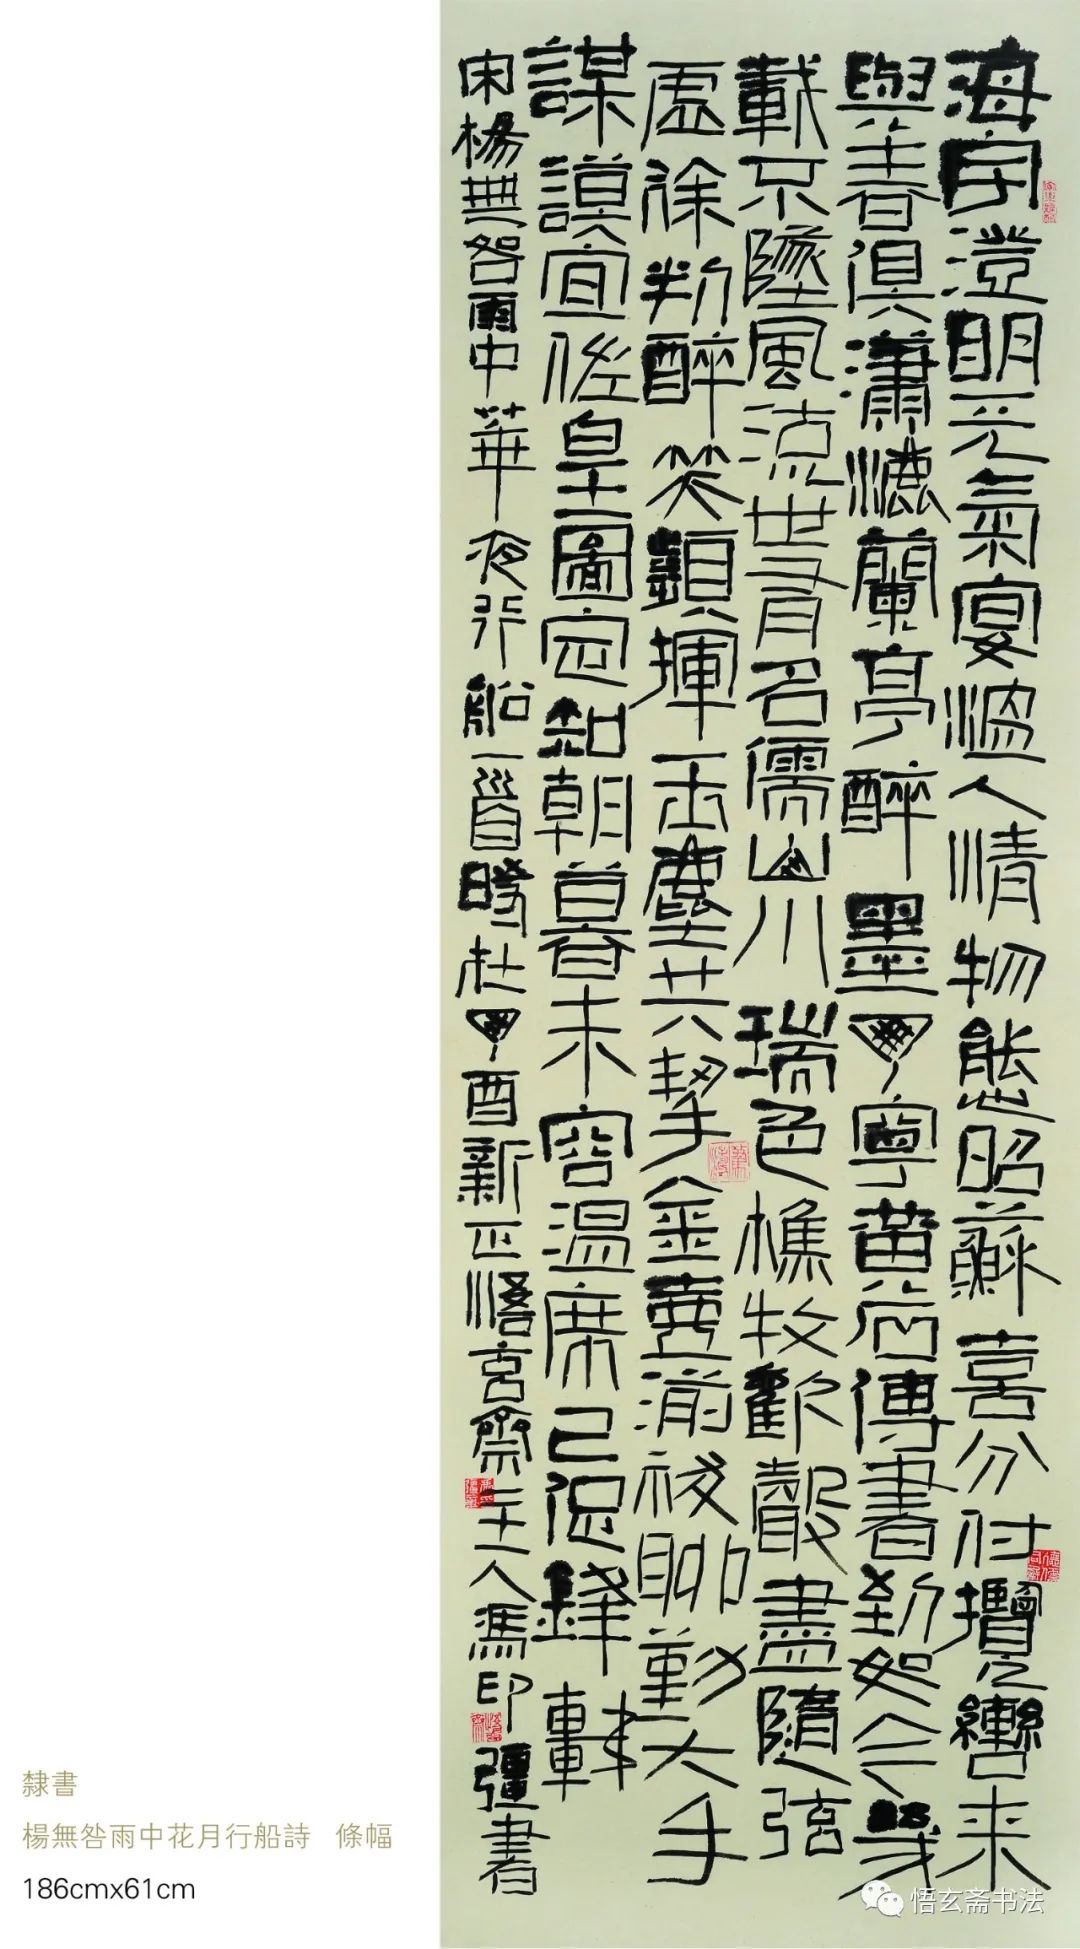 海宇澄明一元氣宴溫人情物態昭蘇喜分付攬轡来
與春俱瀟灑蘭亭醉墨丁寧黃石傳書勅如今幾
載不墜風流世有名儒山川瑞色樵牧歡聲盡隨弦
虛徐判醉笑顏揮玉麈共挈金壺滿祓聊勤大手
謀謨宜佐皇圖定知朝暮未容溫席已促鋒車
宋楊無咎雨中華夜行船一首時杜丁酉新正悟玄齋主人馮印彊書
隸書
楊無咎雨中花月行船詩 條幅
186cmx61cm
悟玄斋书法